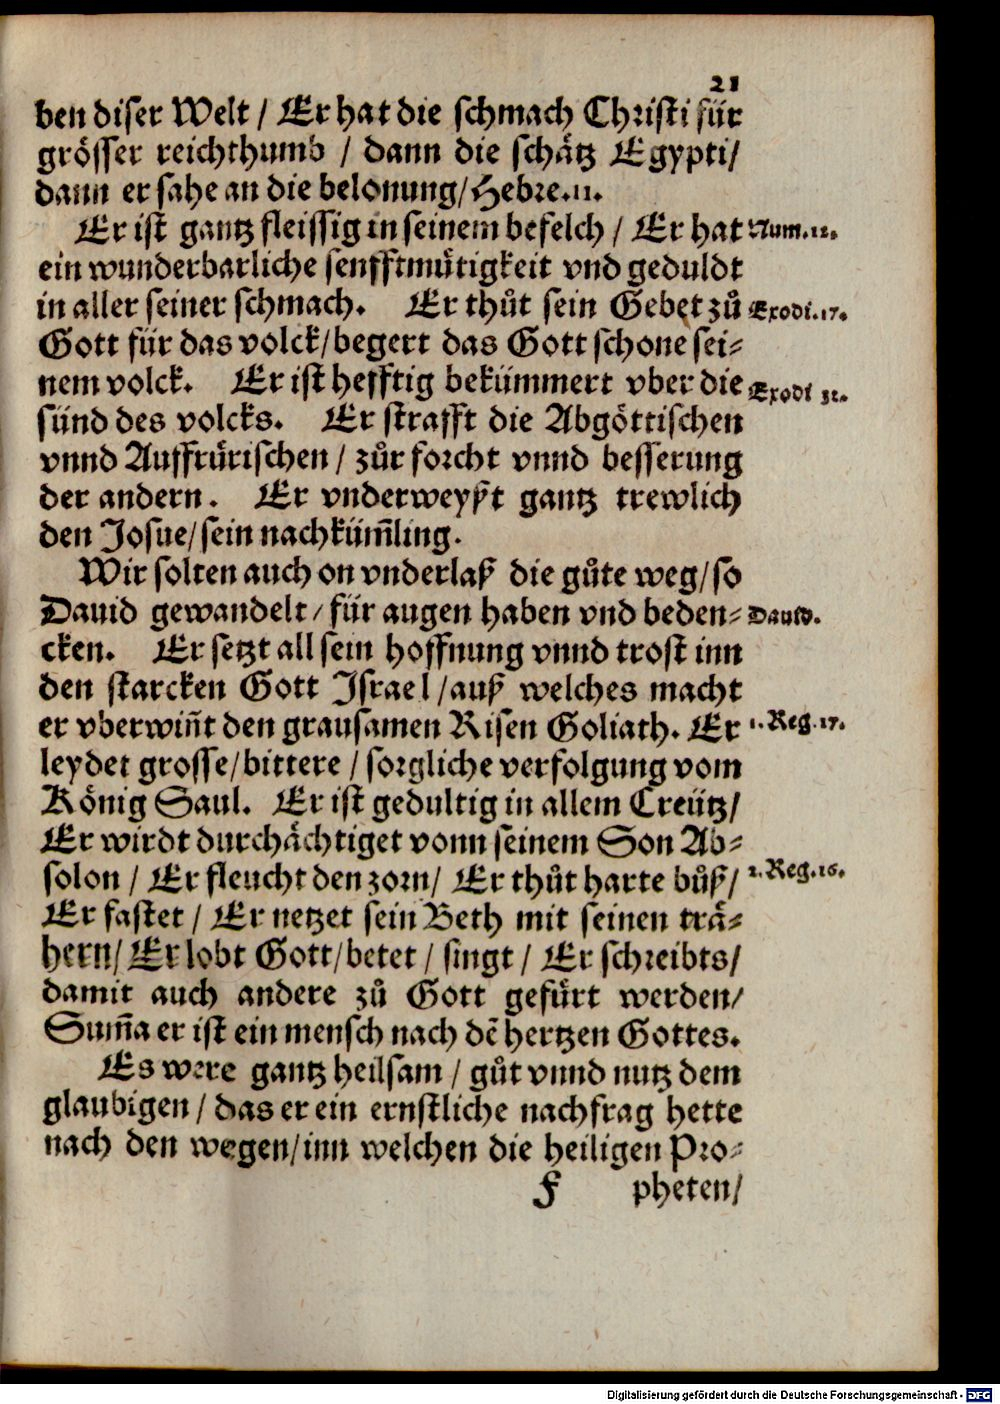 21
ben diser Welt / Er hat die schmach Christi für
grösser reichthumb / dann die schätz Egypti/
dann er sahe an die belonung/Hebre.11.
Er ist gantz fleissig in seinem befelch / Er hat Num.12.
ein wunderbarliche senfftmütigkeit vnd geduldt
in aller seiner schmach. Er thůt sein Gebet zů Exodi.17.
Gott für das volck/begert das Gott schone sei-
nem volck. Er ist hefftig bekümmert vber die Exodi 32.
sünd des volcks. Er strafft die Abgöttischen
vnnd Auffrürischen / zůr forcht vnnd besserung
der andern. Er vnderweyßt gantz trewlich
den Josue/sein nachküm̃ling.
Wir solten auch on vnderlaß die gůte weg/so
Dauid gewandelt/für augen haben vnd beden- Dauid.
cken. Er setzt all sein hoffnung vnnd trost inn
den starcken Gott Israel/auß welches macht
er vberwiñt den grausamen Risen Goliath. Er 1.Reg.17.
leydet grosse/bittere / sorgliche verfolgung vom
König Saul. Er ist gedultig in allem Creütz/
Er wirdt durchächtiget vonn seinem Son Ab-
solon / Er fleucht den zorn/ Er thůt harte bůß/ 2.Reg.16.
Er fastet / Er netzet sein Beth mit seinen trä-
hern/Er lobt Gott/betet / singt / Er schreibts/
damit auch andere zů Gott gefürt werden/
Sum̃a er ist ein mensch nach dẽ hertzen Gottes.
Es were gantz heilsam / gůt vnnd nutz dem
glaubigen / das er ein ernstliche nachfrag hette
nach den wegen/inn welchen die heiligen Pro-
F pheten/
Digitalisierung gefördert durch die Deutsche Forschungsgemeinschaft - DFG